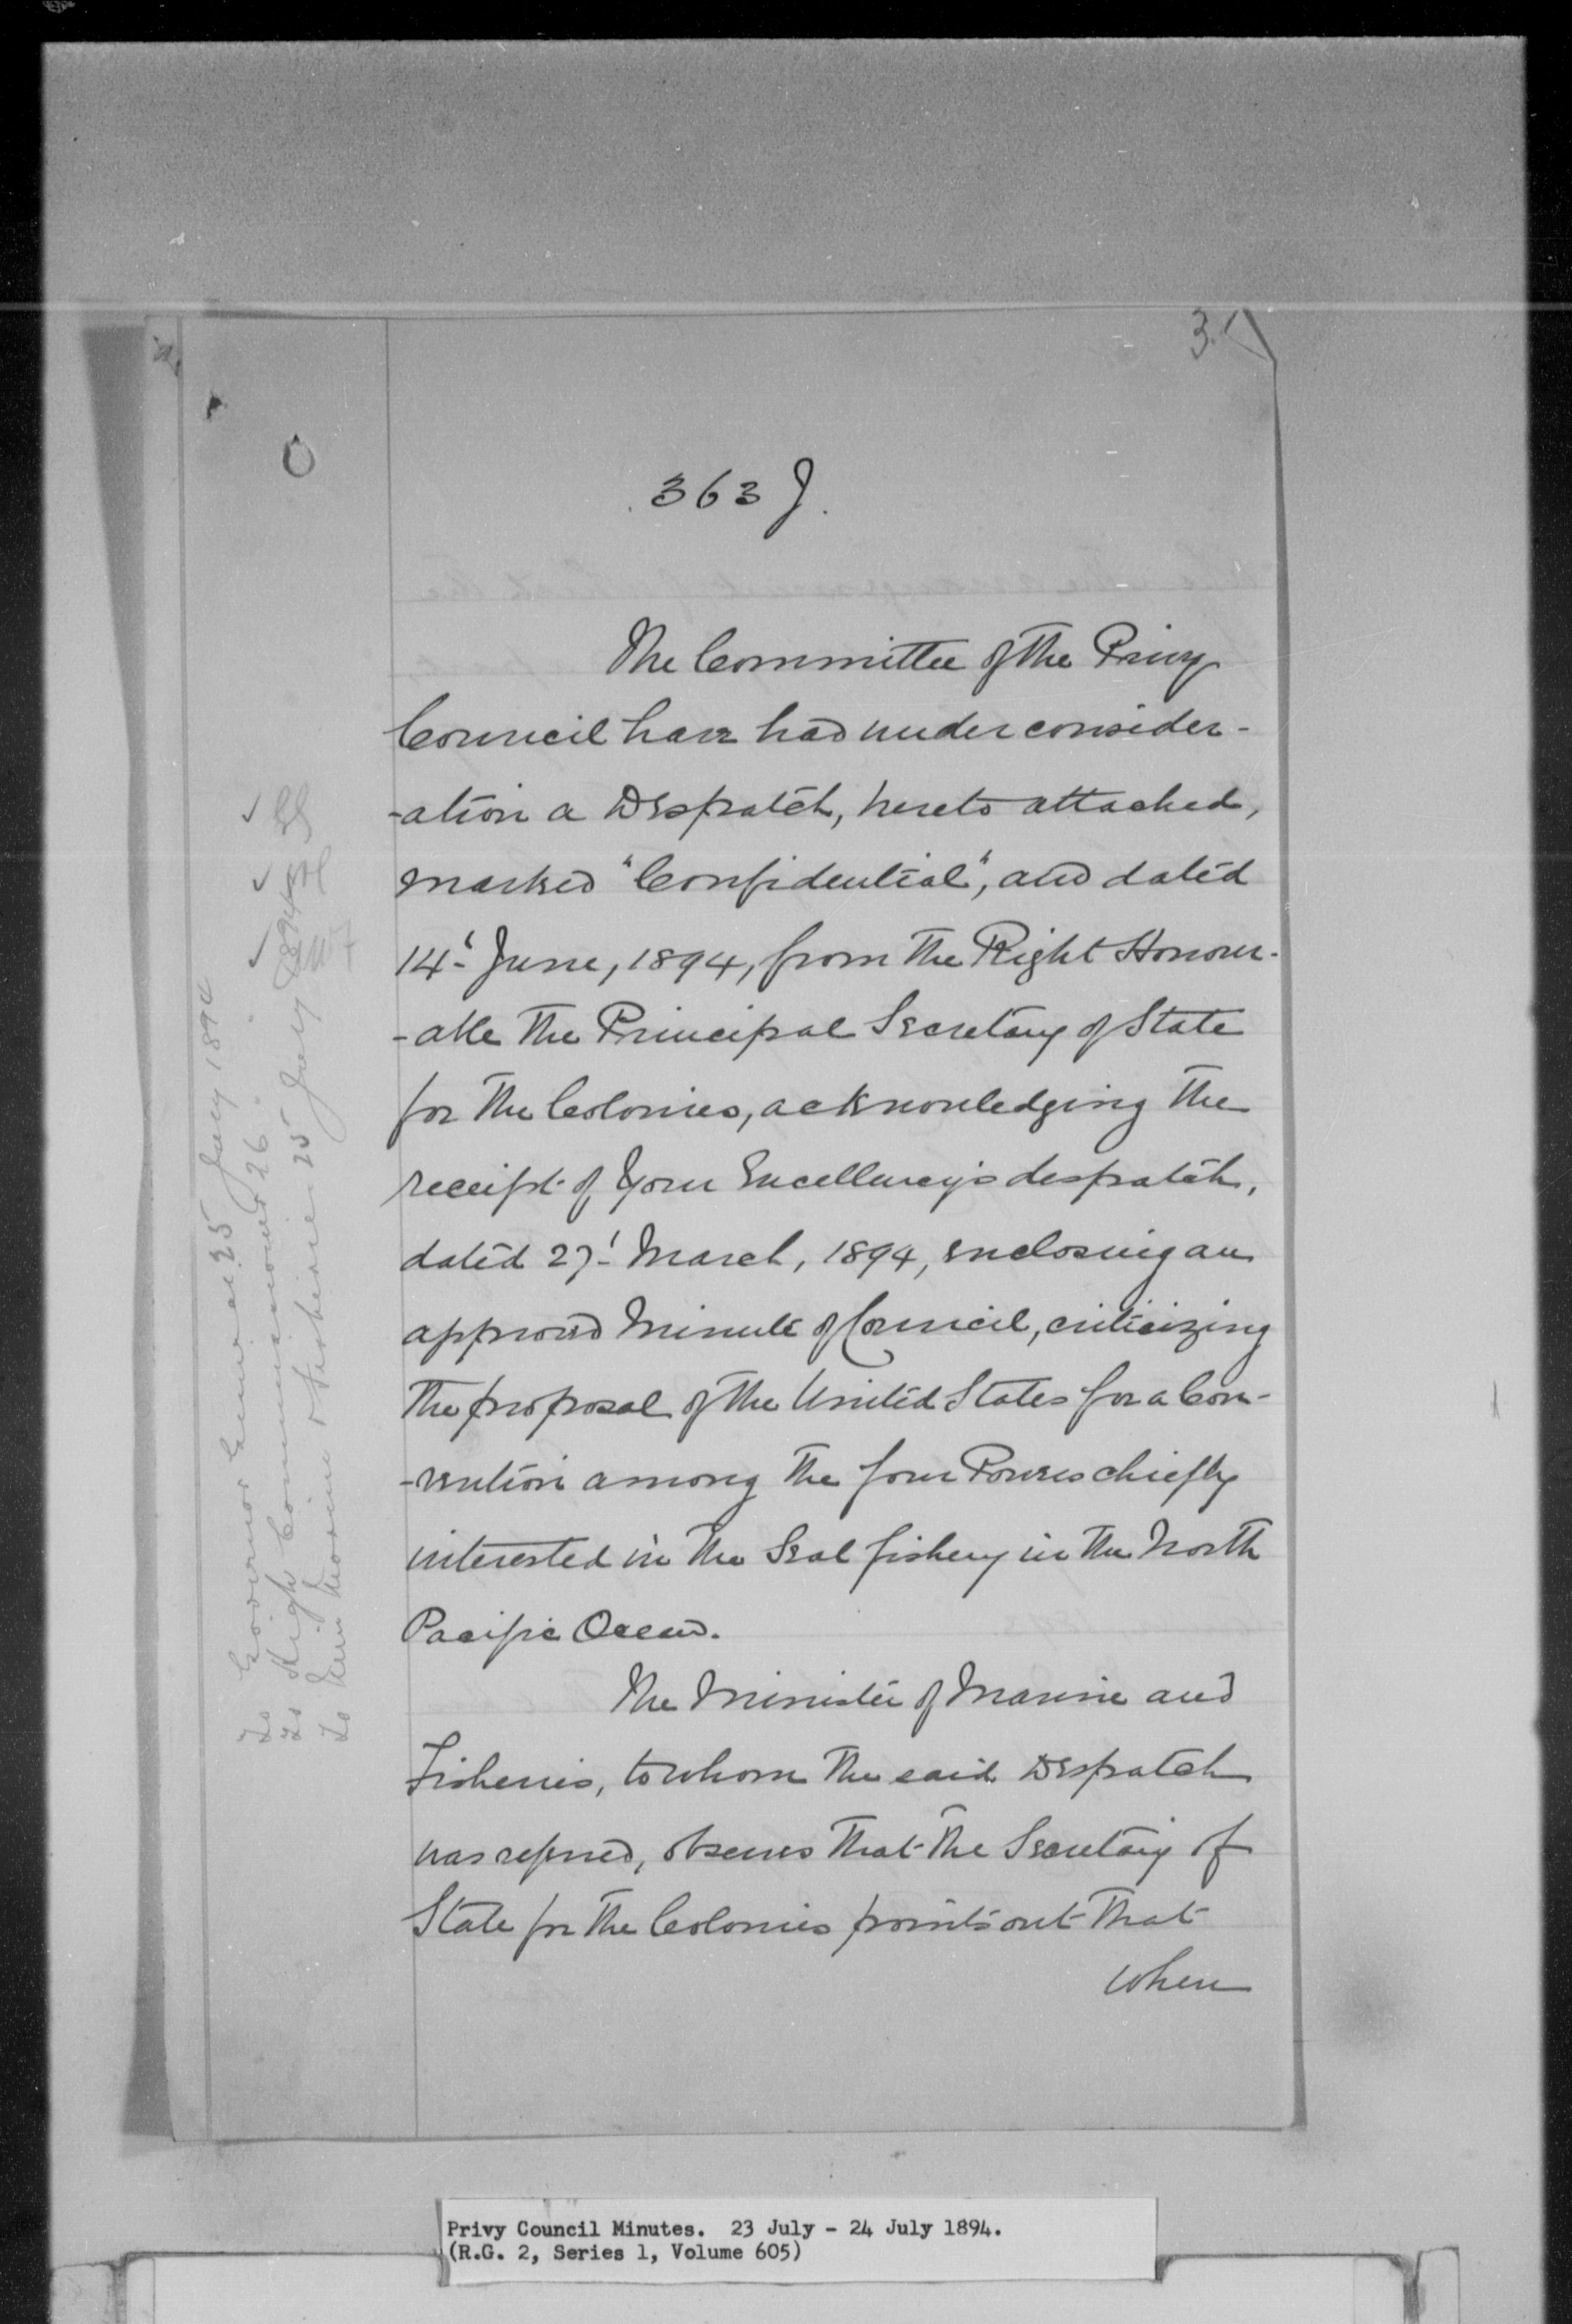 363 J.
The Committee of the Privy
Council have had under consider-
-ation a Despatch, hereto attached,
marked "Confidential", and dated
14th June, 1894, from the Right Honour-
-able the Principal Secretary of State
for the Colonies, acknowledging the
receipt of Your Excellency's despatch,
dated 27th March, 1894, enclosing an
approved Minute of Council, criticizing
the proposal of the United States for a Con-
-vention among the four Powers chiefly
interested in the Seal fishery in the North
Pacific Ocean.
The Minister of Marine and
Fisheries, to whom the said Despatch
was referred, observes that the Secretary of
State for the Colonies points out that
when
To Governor General 25 July 1894
To High Commissioner 26 "
To Min Marine & Fisheries 25 July 1894
Privy Council Minutes. 23 July - 24 July 1894.
(R.G. 2, Series 1, Volume 605)